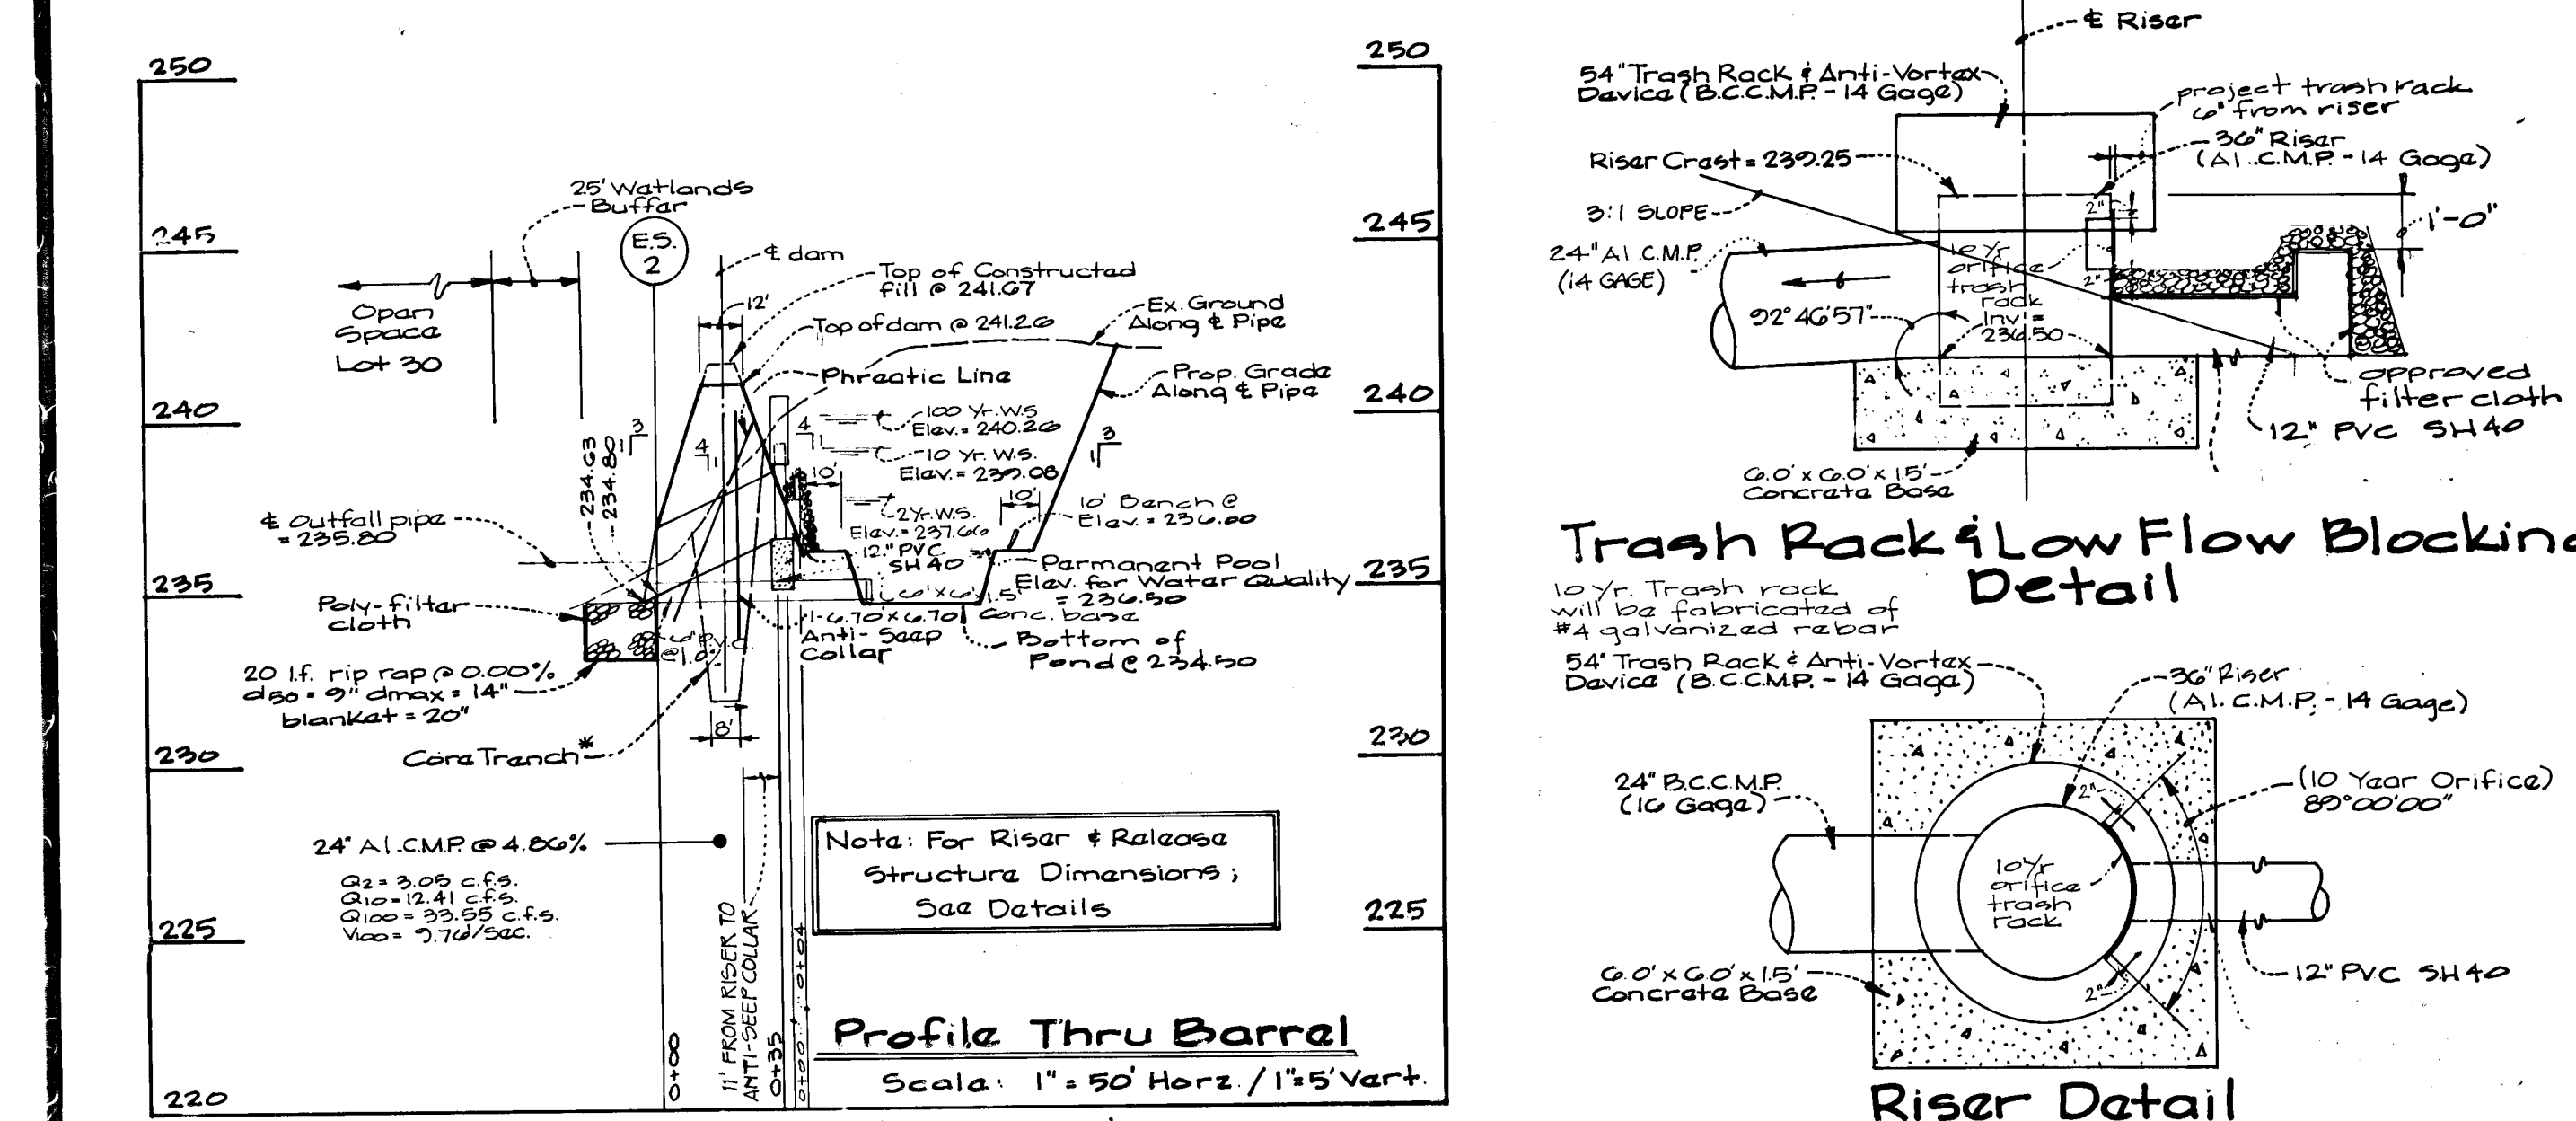 250
245
240
235
230
225
220
250
245
240
235
230
225
25' Wetlands
Buffer
E.S.
2
Open
Space
Lot 30
℄ dam
Top of Constructed
fill @ 241.67
12'
Top of dam @ 241.26
Ex. Ground
Along ℄ Pipe
Phreatic Line
Prop. Grade
Along ℄ Pipe
100 Yr. W.S.
Elev. = 240.26
10 Yr. W.S.
Elev. = 239.08
3
1
4
1
4
1
3
1
234.63
234.80
10'
10'
2 Yr. W.S.
Elev. = 237.66
10' Bench @
Elev. = 236.00
℄ outfall pipe
= 235.80
12" PVC
SH 40
Permanent Pool
Elev. for Water Quality
= 236.50
6' x 6' x 1.5'
Conc. base
Poly-filter
cloth
1-6.70 x 6.70
Anti-Seep
Collar
Bottom of
Pond @ 234.50
6" P.V.C.
@ 1.0%
20 l.f. rip rap @ 0.00%
d50 = 9" dmax = 14"
blanket = 20"
8'
Core Trench*
24" Al. C.M.P. @ 4.86%
Q2 = 3.05 c.f.s.
Q10 = 12.41 c.f.s.
Q100 = 33.55 c.f.s.
V100 = 9.76'/sec.
Note: For Riser & Release
Structure Dimensions;
See Details
0+00
11' FROM RISER TO
ANTI-SEEP COLLAR
0+35
0+00
0+04
Profile Thru Barrel
Scale: 1" = 50' Horz. / 1"=5' Vert.
℄ Riser
54" Trash Rack & Anti-Vortex
Device (B.C.C.M.P. - 14 Gage)
project trash rack
6" from riser
36" Riser
(Al. C.M.P. - 14 Gage)
Riser Crest = 239.25
3:1 SLOPE
2"
1'-0"
24" Al. C.M.P.
(14 GAGE)
10 Yr
orifice
trash
rack
Inv =
236.50
2"
92°46'57"
approved
filter cloth
12" PVC SH 40
6.0' x 6.0' x 1.5'
Concrete Base
Trash Rack & Low Flow Blocking
Detail
10 Yr. Trash rack
will be fabricated of
#4 galvanized rebar
54" Trash Rack & Anti-Vortex
Device (B.C.C.M.P. - 14 Gage)
36" Riser
(Al. C.M.P. - 14 Gage)
24" B.C.C.M.P.
(16 Gage)
2"
(10 Year Orifice)
89°00'00"
10 Yr
orifice
trash
rack
2"
12" PVC SH 40
6.0' x 6.0' x 1.5'
Concrete Base
Riser Detail